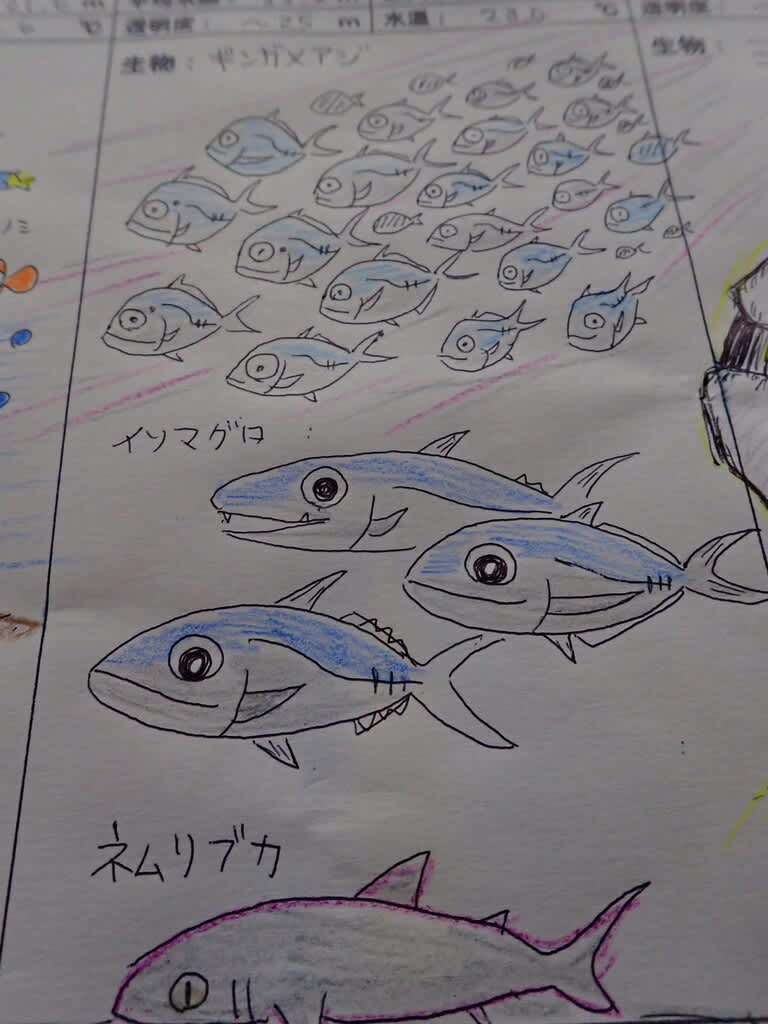 ℃ 透明度: ～25 m 水温: 23.0 ℃ 透明度:
生物: ギンガメアジ 生物:
イソマグロ :
ネムリブカ